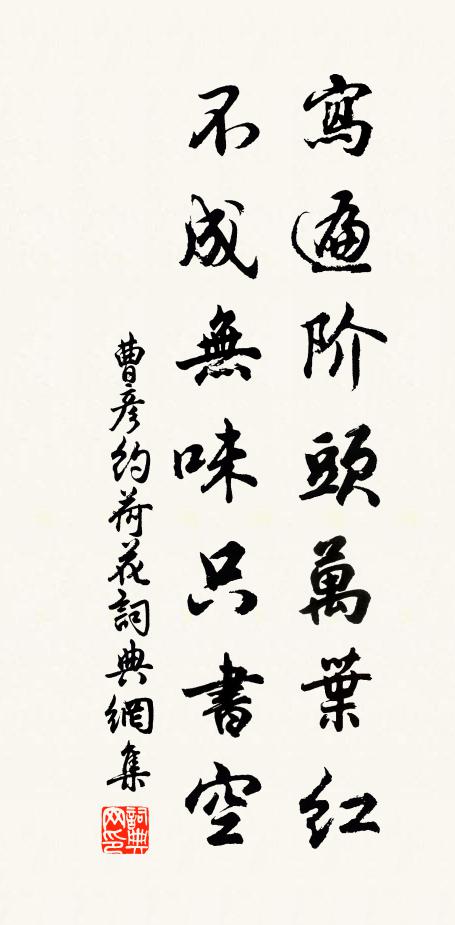 寫遍阶頭萬葉红
不成無味只書空
曹彦约荷花詞典網集
詞典网印